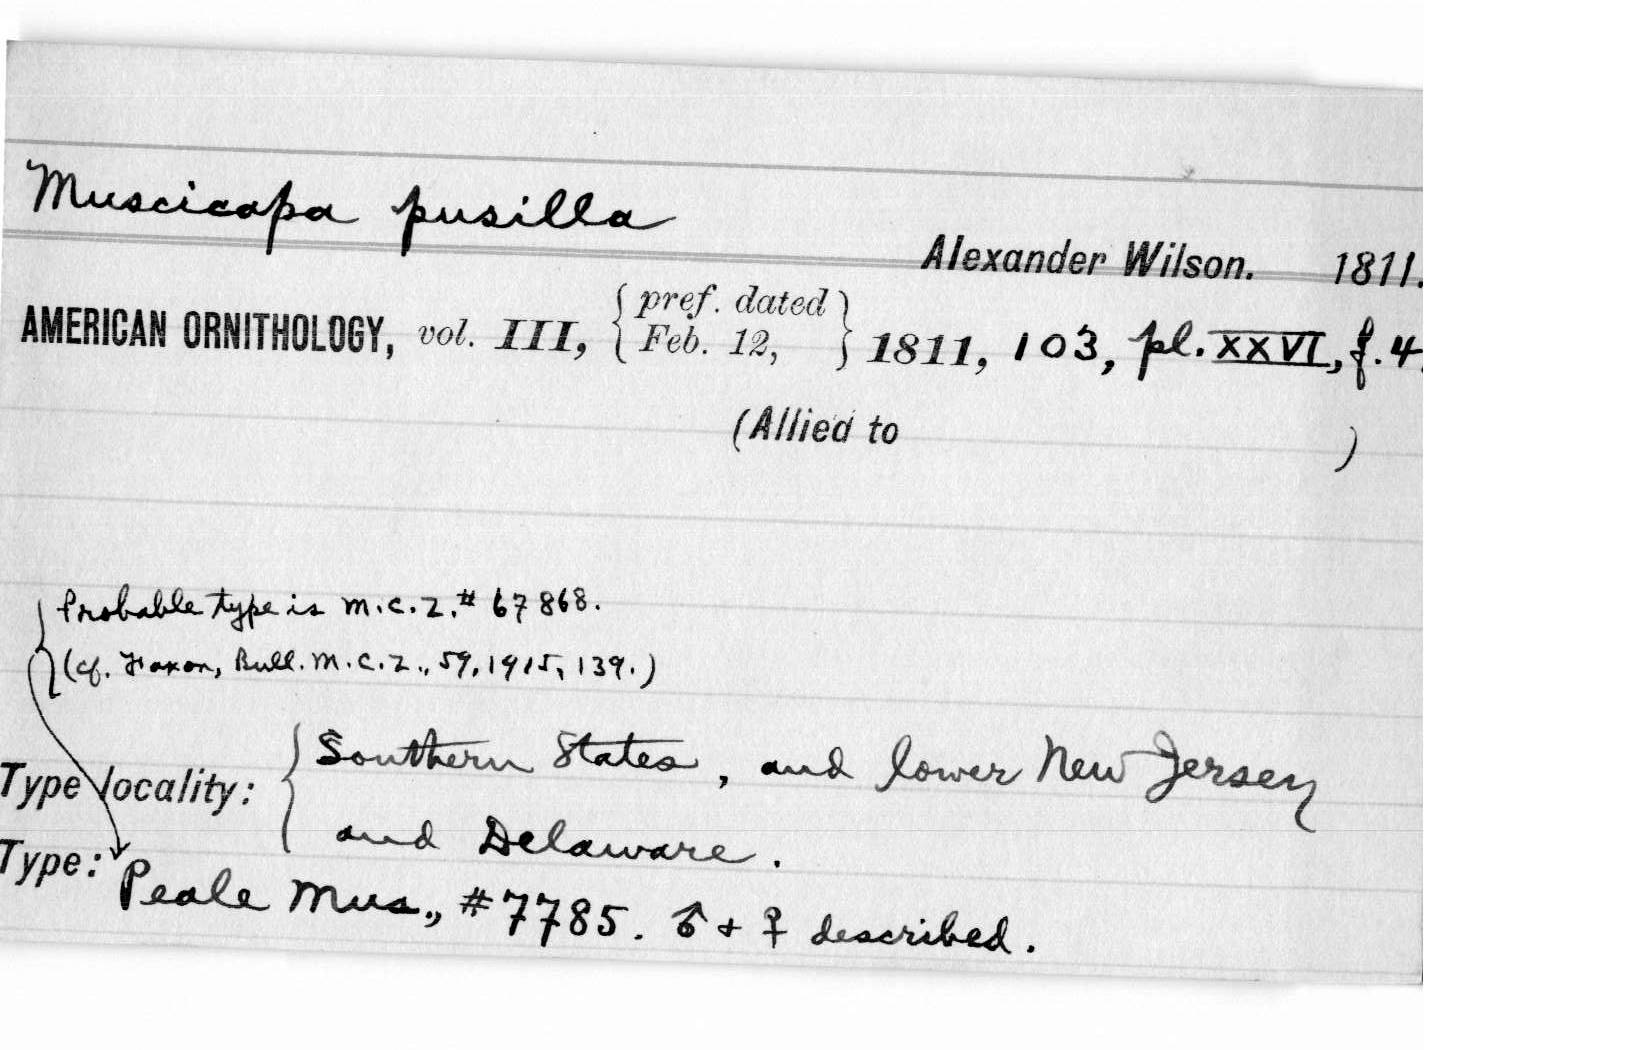 Muscicapa pusilla
Alexander Wilson. 1811.
AMERICAN ORNITHOLOGY, vol. III, { pref. dated Feb. 12, } 1811, 103, pl. XXVI, f. 4.
(Allied to )
Probable type is M.C.Z. # 67868.
(cf. Faxon, Bull. M.C.Z., 59, 1915, 139.)
Type locality: { Southern States, and lower New Jersey
and Delaware.
Type: Peale Mus., #7785. ♂ + ♀ described.